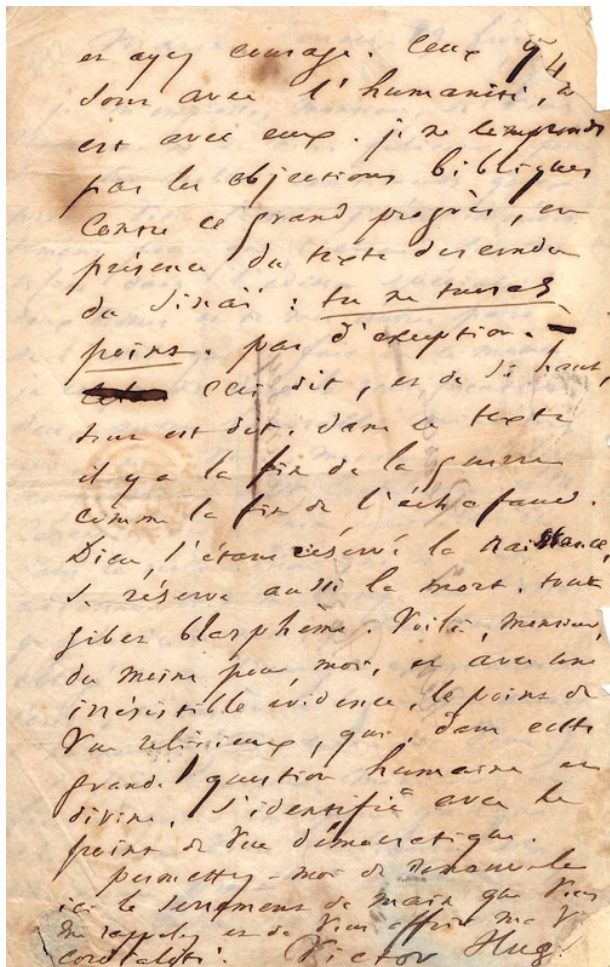 et ayez courage. Ceux q
sont avec l'humanité,
est avec eux. je ne comprends
pas les objections bibliques
contre ce grand progrès, en
présence du texte descendu
du Sinaï : tu ne tueras
point. pas d'exception.
ceci dit, et de si haut,
tout est dit. dans ce texte
il y a la fin de la guerre
comme la fin de l'échafaud.
Dieu, s'étant réservé la naissance,
se réserve aussi la mort. tout
gibet blasphème. Voilà, monsieur,
du moins pour moi, et avec une
irrésistible évidence, le point de
vue religieux, qui, dans cette
grande question humaine et
divine, s'identifie avec le
point de vue démocratique.
permettez-moi de
ici le serrement de main que vous
me rappelez et de vous offrir ma
cordialité. Victor Hugo